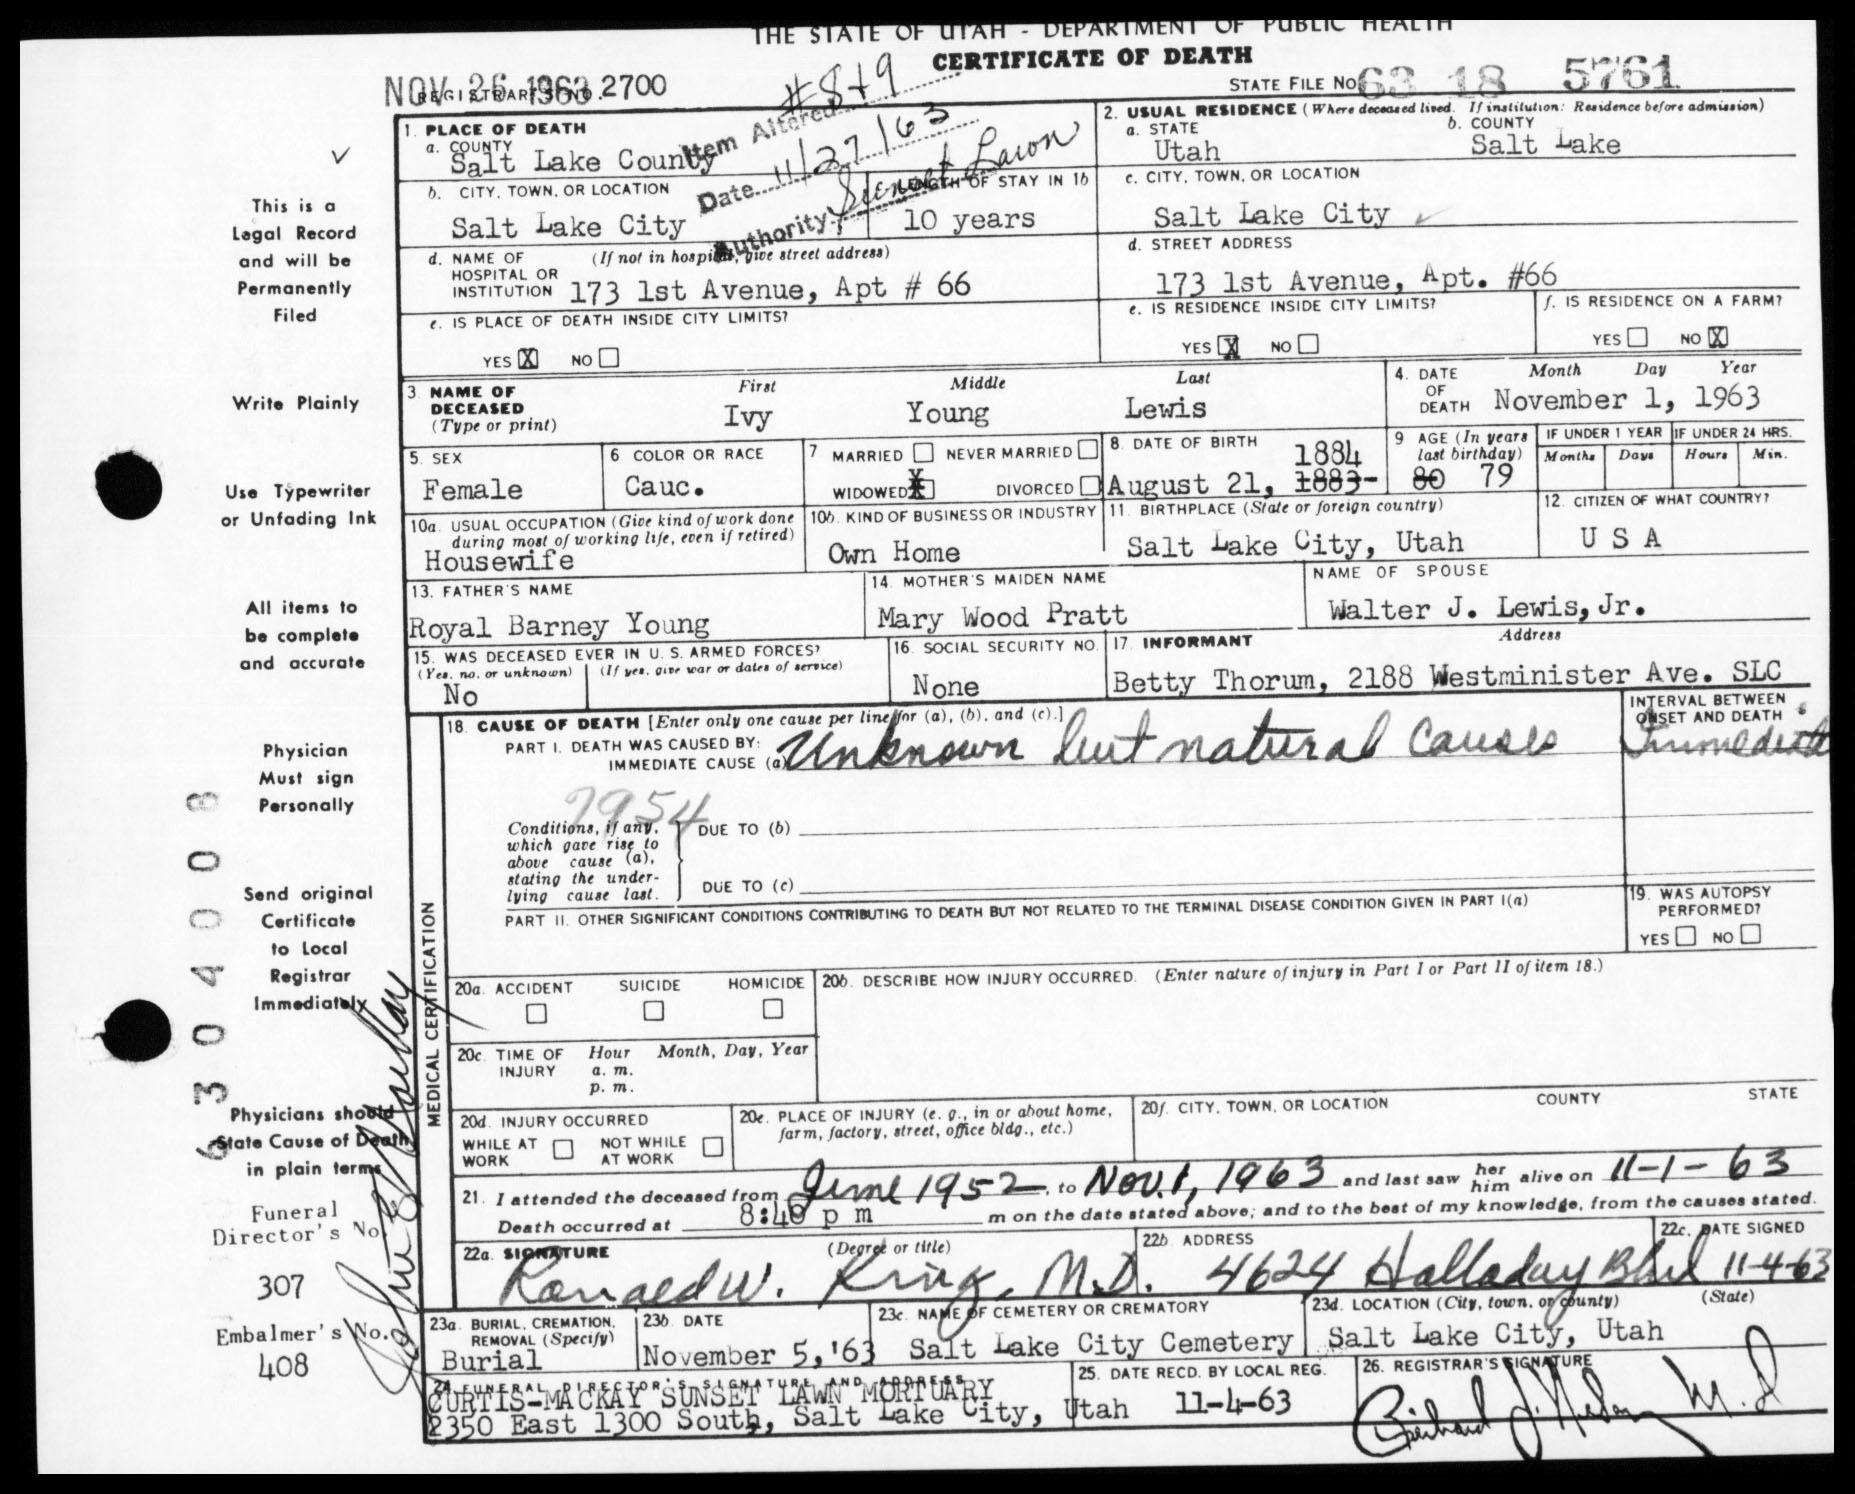 THE STATE OF UTAH - DEPARTMENT OF PUBLIC HEALTH
CERTIFICATE OF DEATH
NOV 26 1963
REGISTRAR'S NO. 2700
STATE FILE NO. 63 18 5761
Item Altered #8+9
Date 11/27/63
Authority Sunset Lawn
1. PLACE OF DEATH
a. COUNTY
Salt Lake County
2. USUAL RESIDENCE (Where deceased lived. If institution: Residence before admission)
a. STATE
Utah
b. COUNTY
Salt Lake
b. CITY, TOWN, OR LOCATION
Salt Lake City
LENGTH OF STAY IN 1b
10 years
c. CITY, TOWN, OR LOCATION
Salt Lake City
d. NAME OF HOSPITAL OR INSTITUTION
(If not in hospital, give street address)
173 1st Avenue, Apt # 66
d. STREET ADDRESS
173 1st Avenue, Apt. #66
e. IS PLACE OF DEATH INSIDE CITY LIMITS?
YES X NO
e. IS RESIDENCE INSIDE CITY LIMITS?
YES X NO
f. IS RESIDENCE ON A FARM?
YES NO X
3. NAME OF DECEASED (Type or print)
First Middle Last
Ivy Young Lewis
4. DATE OF DEATH
Month Day Year
November 1, 1963
5. SEX
Female
6 COLOR OR RACE
Cauc.
7 MARRIED NEVER MARRIED
WIDOWED X DIVORCED
8. DATE OF BIRTH
1884
August 21, 1883-
9 AGE (In years last birthday)
80 79
IF UNDER 1 YEAR
Months Days
IF UNDER 24 HRS.
Hours Min.
10a. USUAL OCCUPATION (Give kind of work done during most of working life, even if retired)
Housewife
10b. KIND OF BUSINESS OR INDUSTRY
Own Home
11. BIRTHPLACE (State or foreign country)
Salt Lake City, Utah
12. CITIZEN OF WHAT COUNTRY?
U S A
13. FATHER'S NAME
Royal Barney Young
14. MOTHER'S MAIDEN NAME
Mary Wood Pratt
NAME OF SPOUSE
Walter J. Lewis, Jr.
15. WAS DECEASED EVER IN U. S. ARMED FORCES?
(Yes, no, or unknown) (If yes, give war or dates of service)
No
16. SOCIAL SECURITY NO.
None
17. INFORMANT Address
Betty Thorum, 2188 Westminister Ave. SLC
MEDICAL CERTIFICATION
18. CAUSE OF DEATH [Enter only one cause per line for (a), (b), and (c).]
PART I. DEATH WAS CAUSED BY:
IMMEDIATE CAUSE (a) Unknown but natural causes
INTERVAL BETWEEN ONSET AND DEATH
Immediate
7954
Conditions, if any, which gave rise to above cause (a), stating the underlying cause last.
DUE TO (b)
DUE TO (c)
PART II. OTHER SIGNIFICANT CONDITIONS CONTRIBUTING TO DEATH BUT NOT RELATED TO THE TERMINAL DISEASE CONDITION GIVEN IN PART I(a)
19. WAS AUTOPSY PERFORMED?
YES NO
20a. ACCIDENT SUICIDE HOMICIDE
20b. DESCRIBE HOW INJURY OCCURRED. (Enter nature of injury in Part I or Part II of item 18.)
20c. TIME OF INJURY
Hour Month, Day, Year
a. m.
p. m.
20d. INJURY OCCURRED
WHILE AT WORK NOT WHILE AT WORK
20e. PLACE OF INJURY (e. g., in or about home, farm, factory, street, office bldg., etc.)
20f. CITY, TOWN, OR LOCATION COUNTY STATE
21. I attended the deceased from June 1952, to Nov. 1, 1963 and last saw her him alive on 11-1-63
Death occurred at 8:40 p m m on the date stated above; and to the best of my knowledge, from the causes stated.
22a. SIGNATURE (Degree or title)
Ronald W. King, M.D.
22b. ADDRESS
4624 Holladay Blvd
22c. DATE SIGNED
11-4-63
23a. BURIAL, CREMATION, REMOVAL (Specify)
Burial
23b. DATE
November 5, '63
23c. NAME OF CEMETERY OR CREMATORY
Salt Lake City Cemetery
23d. LOCATION (City, town, or county) (State)
Salt Lake City, Utah
24. FUNERAL DIRECTOR'S SIGNATURE AND ADDRESS
CURTIS-MACKAY SUNSET LAWN MORTUARY
2350 East 1300 South, Salt Lake City, Utah
25. DATE RECD. BY LOCAL REG.
11-4-63
26. REGISTRAR'S SIGNATURE
M.D
This is a
Legal Record
and will be
Permanently
Filed
Write Plainly
Use Typewriter
or Unfading Ink
All items to
be complete
and accurate
Physician
Must sign
Personally
Send original
Certificate
to Local
Registrar
Immediately
Physicians should
State Cause of Death
in plain terms
Funeral
Director's No.
307
Embalmer's No.
408
6304008